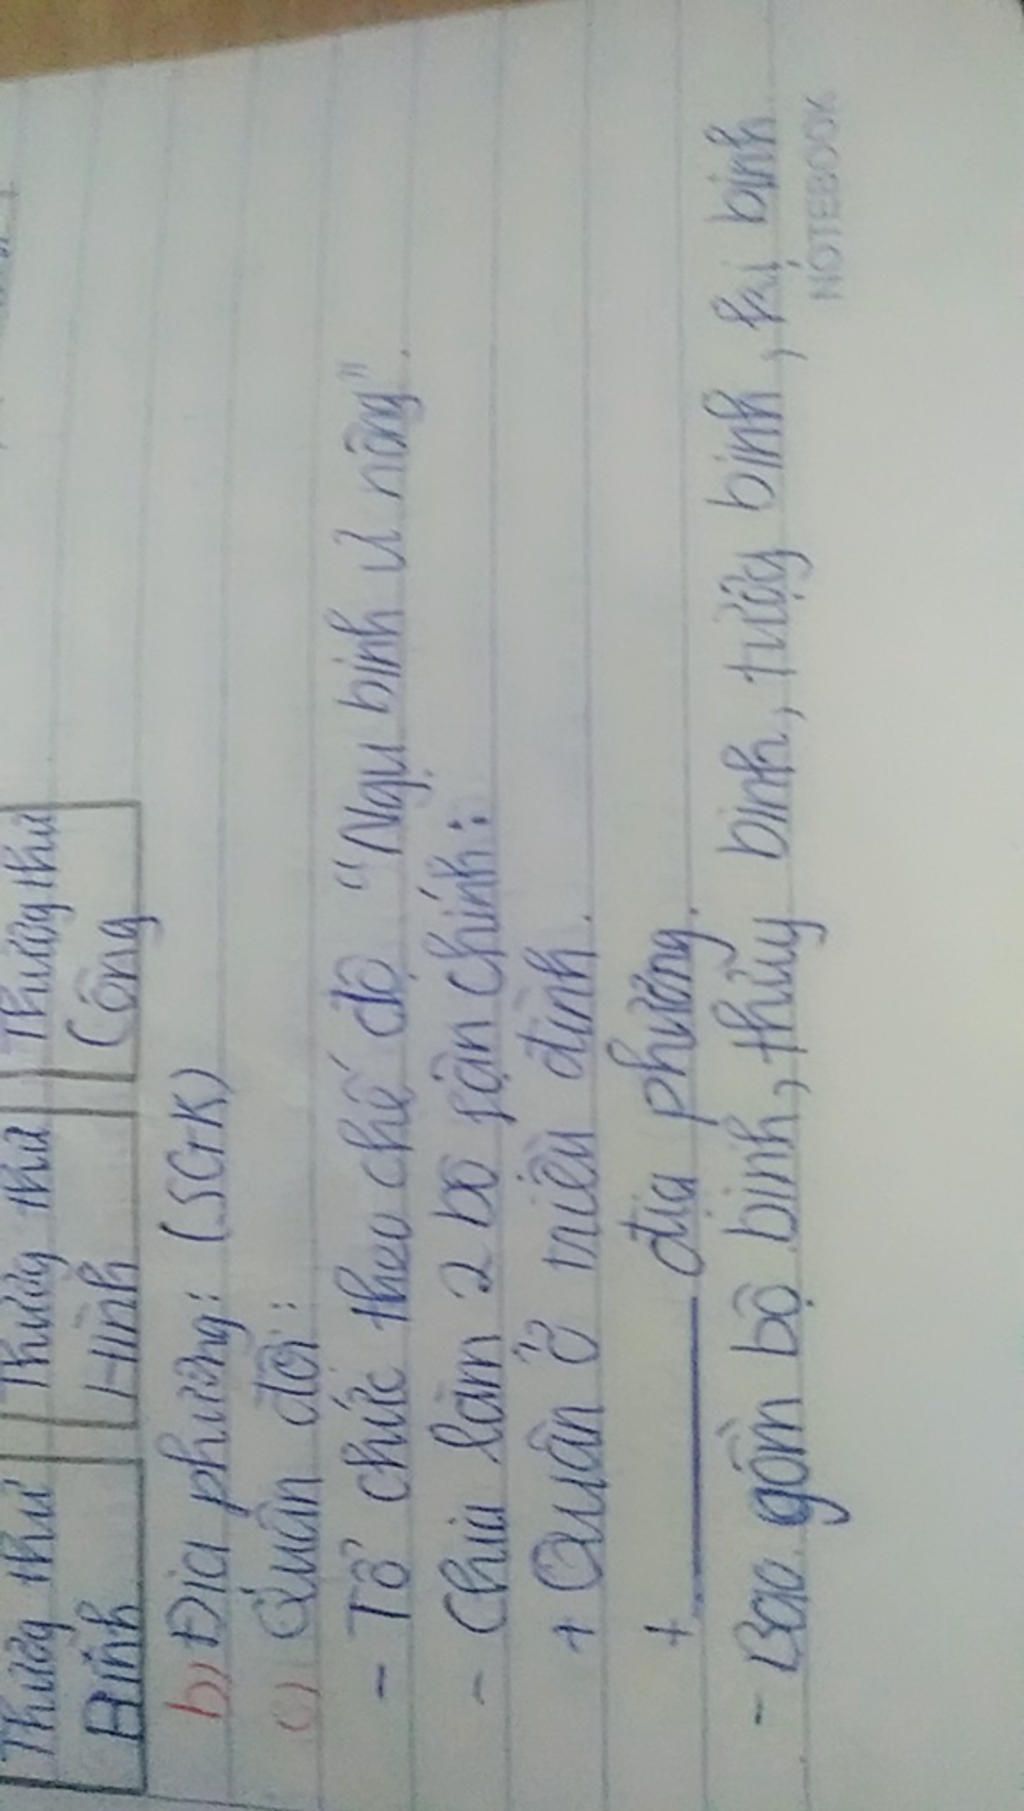 Thượng thư Thượng thư Thượng thư
Binh Hình Công
b) Địa phương: (SGK)
c) Quân đội:
- Tổ chức theo chế độ "Ngụ binh ư nông".
- Chia làm 2 bộ phận chính:
+ Quân ở triều đình.
+ ——— địa phương.
- Bao gồm bộ binh, thủy binh, tượng binh, kị binh
NOTEBOOK